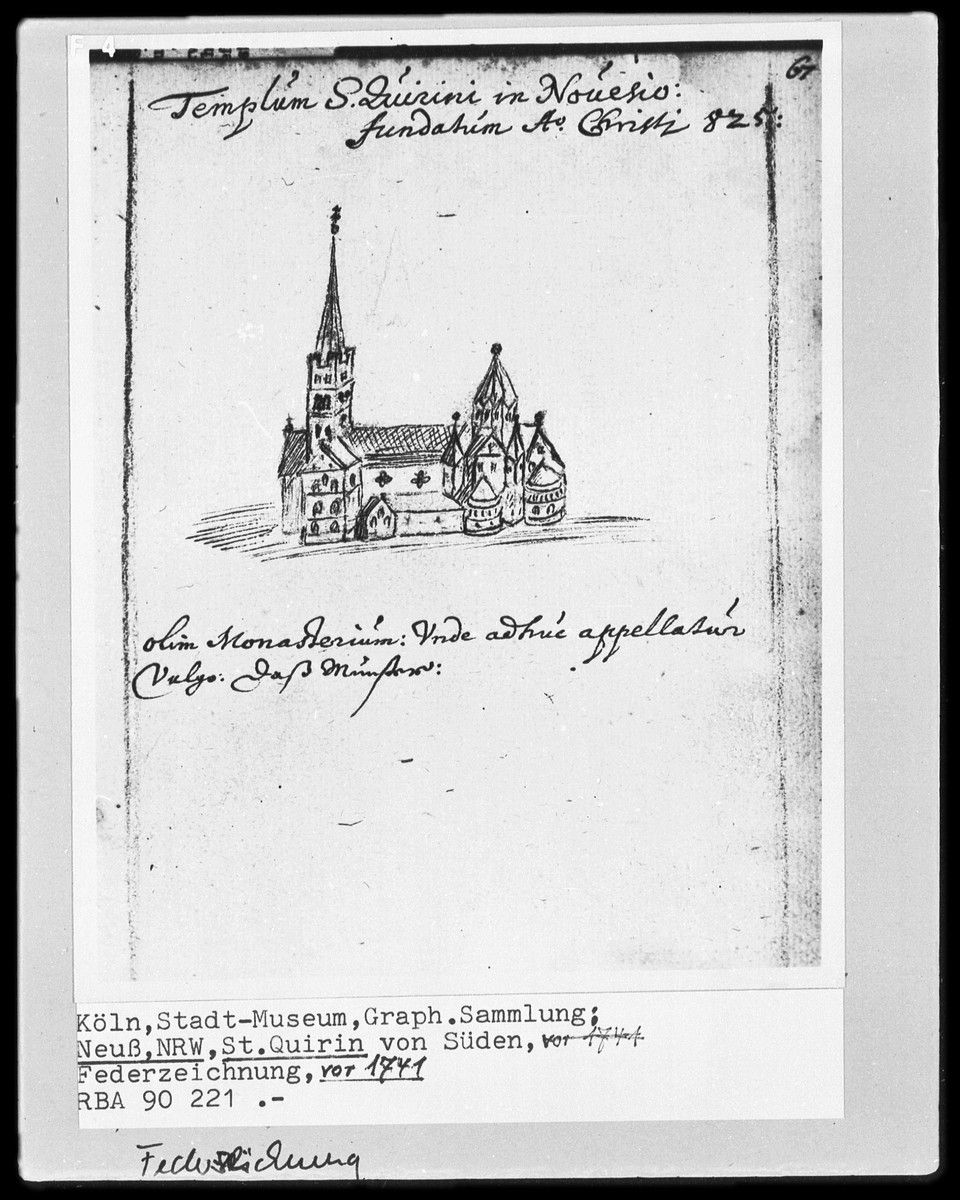 Templúm S. Quirini in Nouesio:
fundatúm Ao. Christi 825:
olim Monasteriúm: Vnde adhúc appellatúr
Vulgo: Daß Múnster:
Köln,Stadt-Museum,Graph.Sammlung;
Neuß,NRW,St.Quirin von Süden, vor 1741
Federzeichnung, vor 1741
RBA 90 221 .-
Federzeichnung